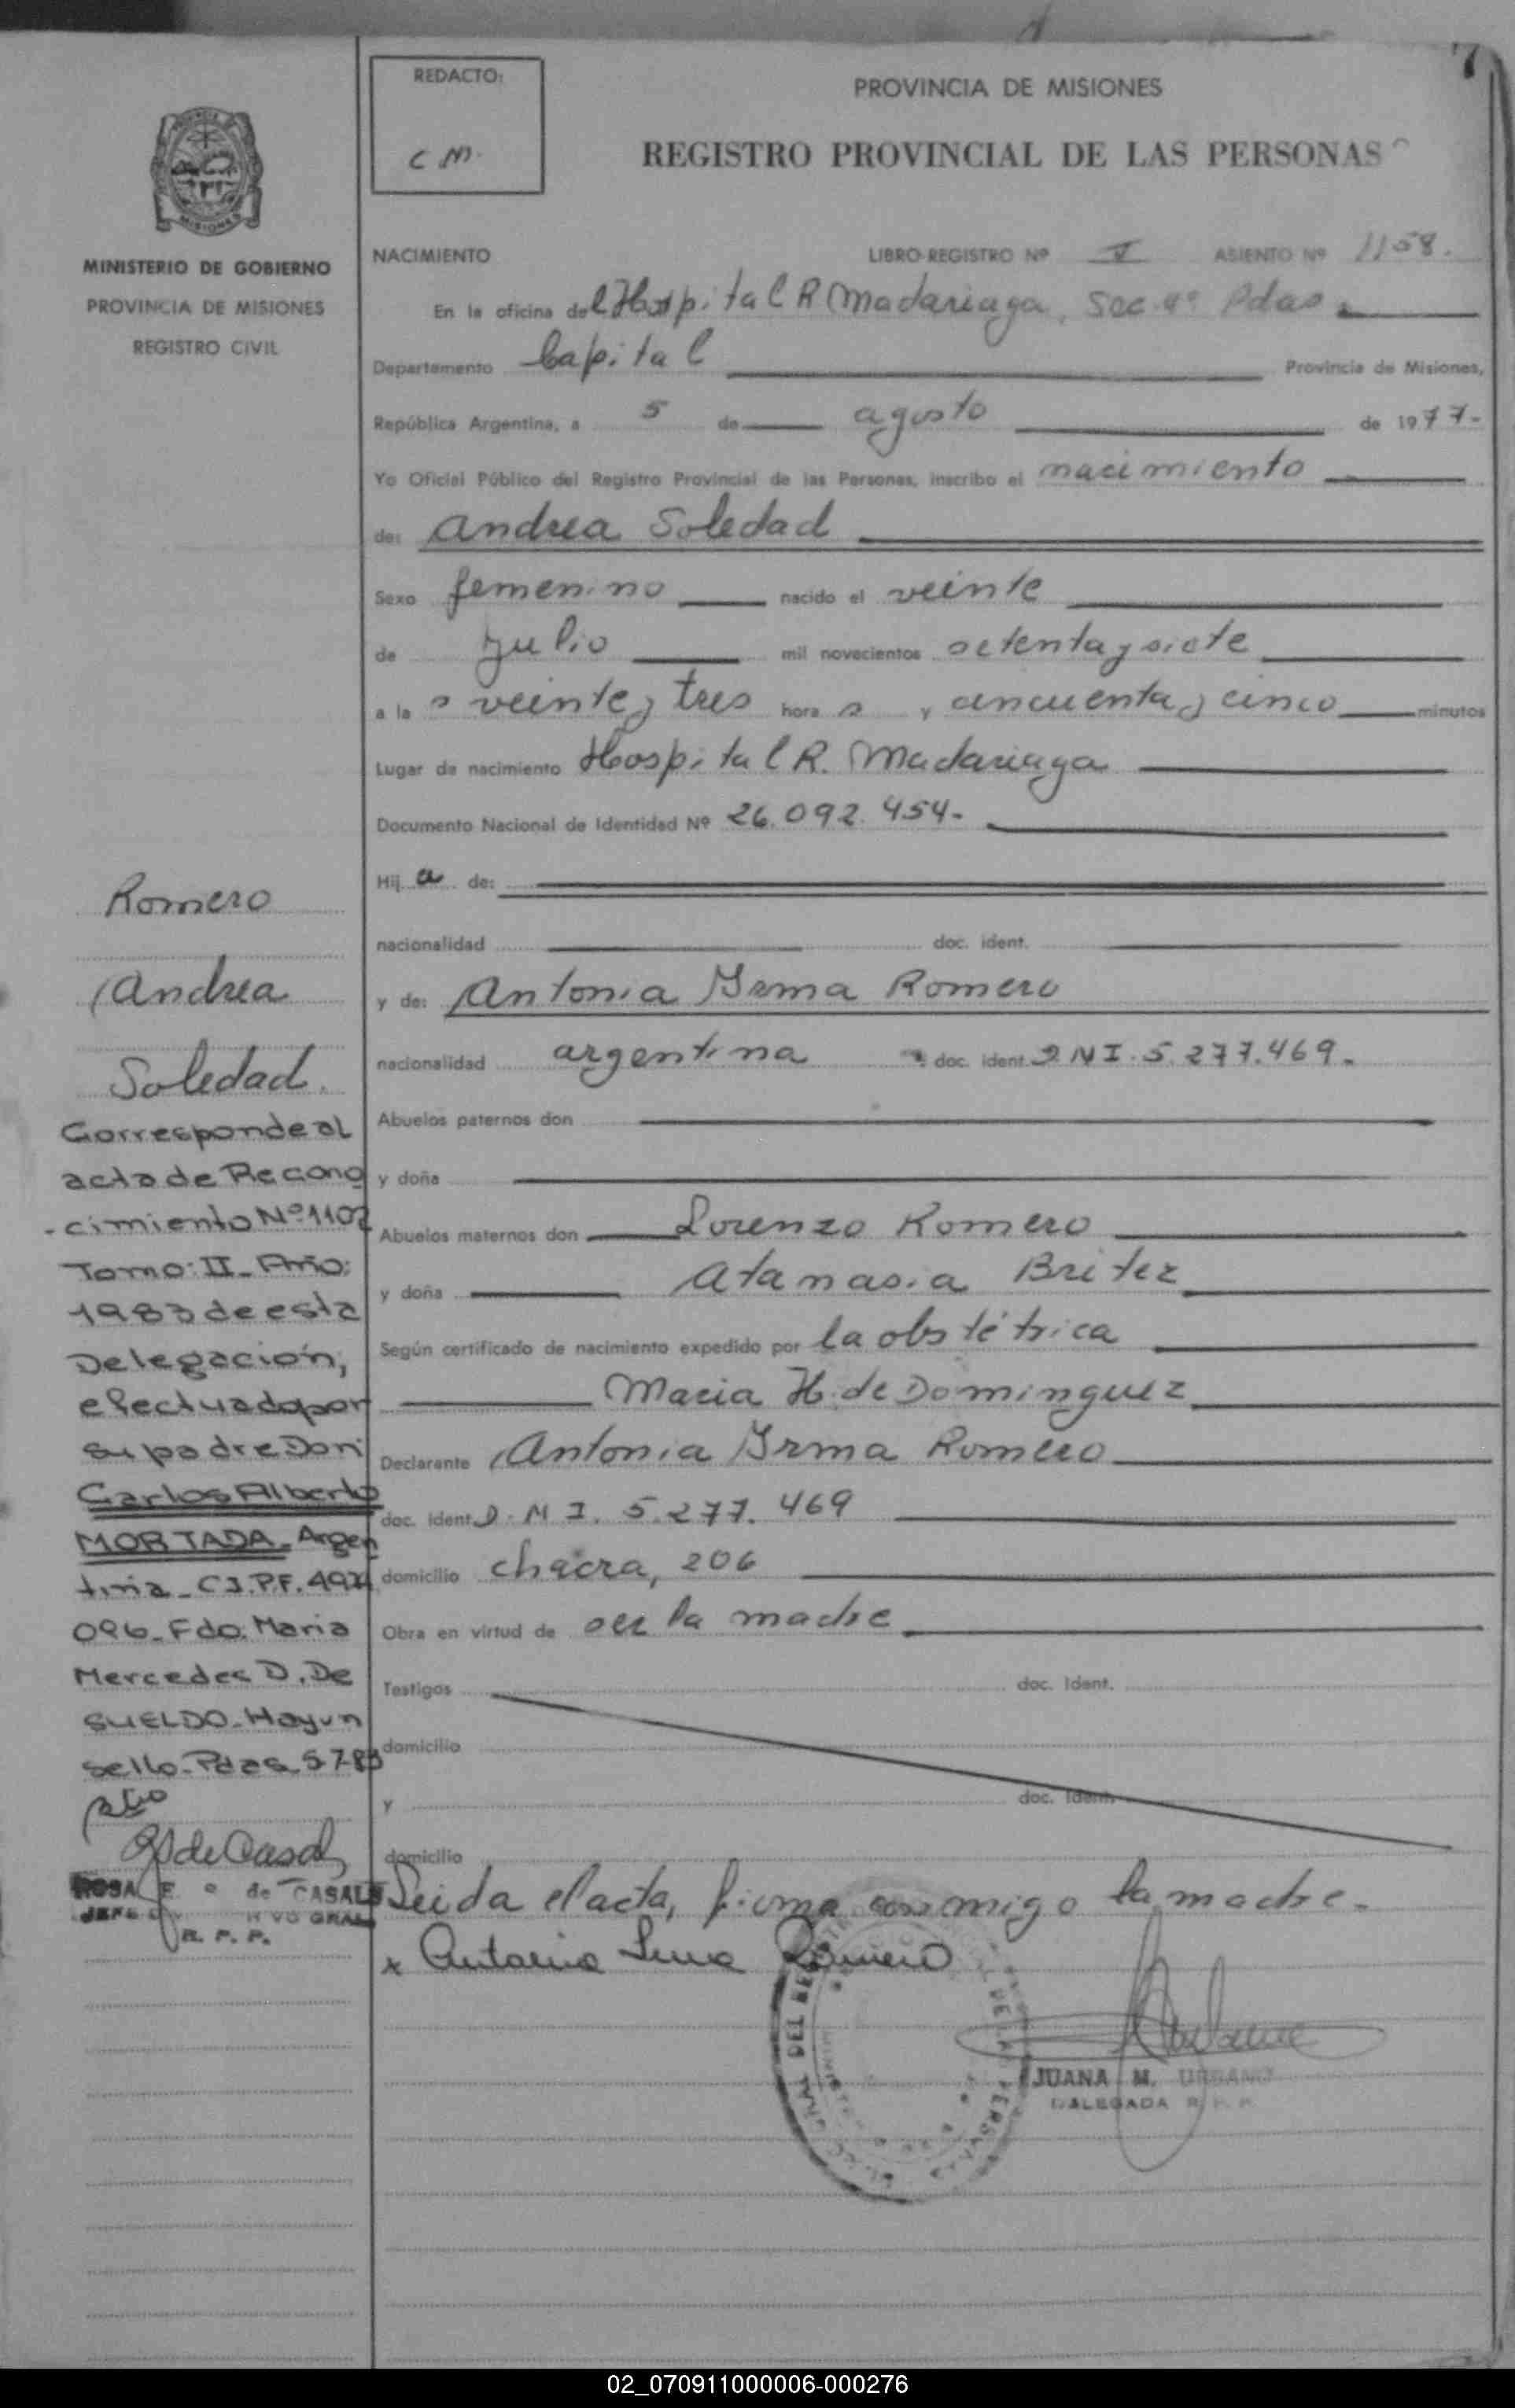 REDACTO:
C M.
PROVINCIA DE MISIONES
REGISTRO PROVINCIAL DE LAS PERSONAS
MISIONES
MINISTERIO DE GOBIERNO
PROVINCIA DE MISIONES
REGISTRO CIVIL
NACIMIENTO LIBRO-REGISTRO Nº V ASIENTO Nº 1158.
En la oficina del Hospital R Madariaga, Sec. 4º Pdas.
Departamento Capital Provincia de Misiones,
República Argentina, a 5 de agosto de 1977-
Yo Oficial Público del Registro Provincial de las Personas, inscribo el nacimiento
de: Andrea Soledad
Sexo femenino nacido el veinte
de Julio mil novecientos setenta y siete
a las veinte y tres horas y cincuenta y cinco minutos
Lugar de nacimiento Hospital R. Madariaga
Documento Nacional de Identidad Nº 26.092.454-
Hija de:
nacionalidad doc. ident.
y de: Antonia Irma Romero
nacionalidad argentina doc. ident. D N I. 5.277.469-
Abuelos paternos don
y doña
Abuelos maternos don Lorenzo Romero
y doña Atanasia Britez
Según certificado de nacimiento expedido por la obstétrica
Maria H. de Dominguez
Declarante Antonia Irma Romero
doc. ident. D. N I. 5.277.469
domicilio chacra, 206
Obra en virtud de ser la madre
Testigos doc. Ident.
domicilio
y doc. Ident.
domicilio
Leida el acta, firma conmigo la madre.
x Antonia Irma Romero
JUANA M. URBANO
DELEGADA R. P. P.
Romero
Andrea
Soledad.
Corresponde al
acta de Recono
-cimiento Nº 1102
Tomo: II_ Año:
1983 de esta
Delegación,
efectuado por
su padre Don
Carlos Alberto
MORTADA_ Argen
tina_ C.I.P.F. 4924
096_ Fdo: Maria
Mercedes D. De
SUELDO_ Hay un
sello_ Pdas_ 5-7-83
R de Casals
ROSA E. de CASALS
R. P. P.
02_070911000006-000276